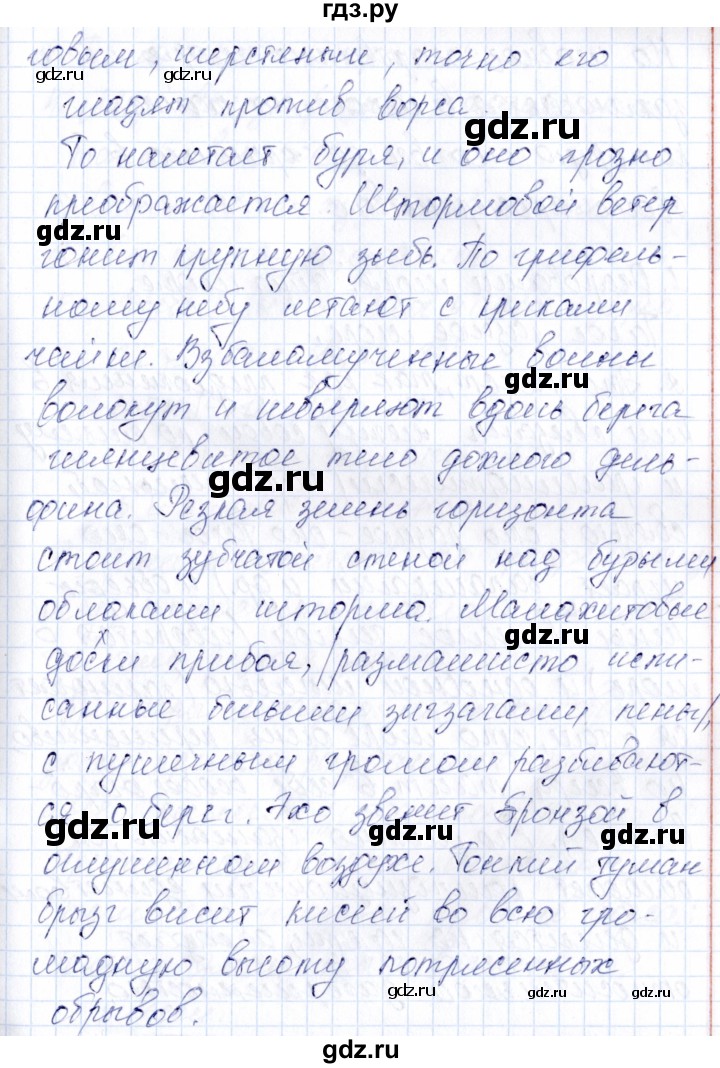 гдз.ру
говым, шерстяным, точно его
гладят против ворса.
То налетает буря, и оно грозно
преображается. Штормовой ветер
гонит крупную зыбь. По грифель-
ному небу летают с криками
чайки. Взбаламученные волны
волокут и швыряют вдоль берега
глянцевитое тело дохлого дель-
фина. Резкая зелень горизонта
стоит зубчатой стеной над бурыми
облаками шторма. Малахитовые
доски прибоя, размашисто испи-
санные беглыми зигзагами пены,
с пушечным громом разбивают-
ся о берег. Эхо звенит бронзой в
оглушенном воздухе. Тонкий туман
брызг висит кисеей во всю гро-
мадную высоту потрясенных
обрывов.
gdz.ru